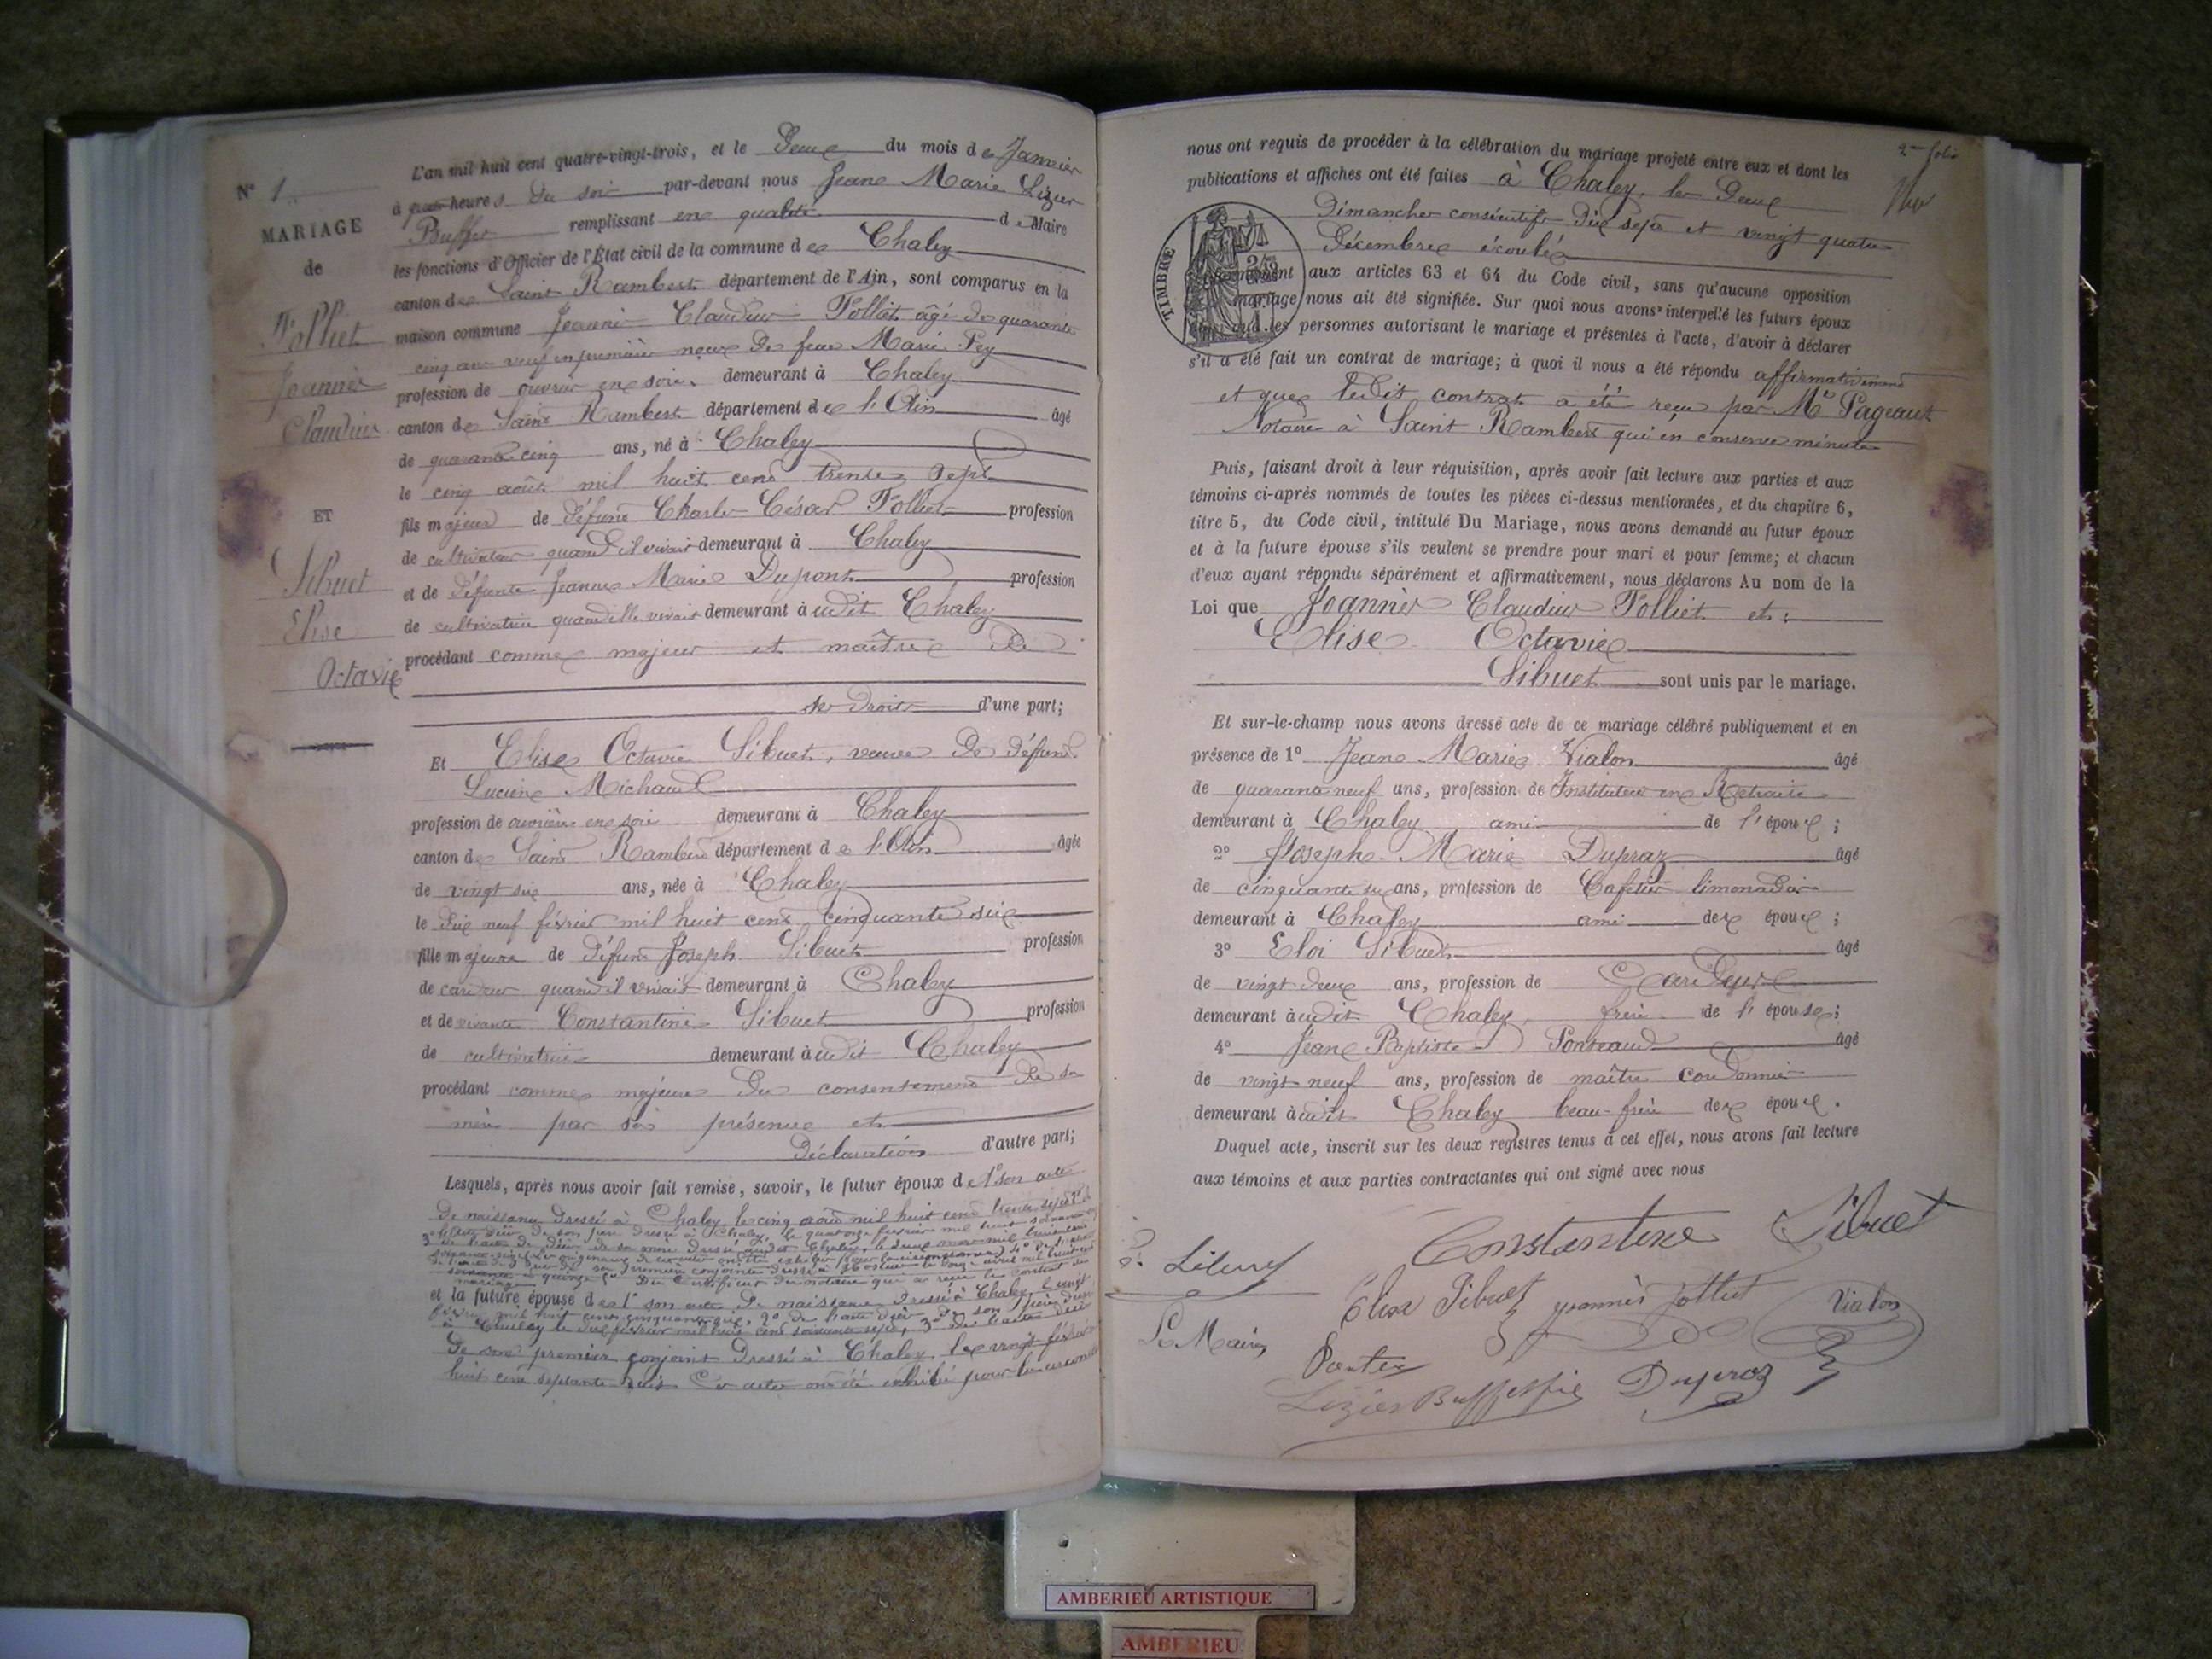 L'an mil huit cent quatre-vingt-trois, et le Deux du mois de Janvier
N° 1
à heures du soir par-devant nous Jean Marie Lizier
MARIAGE
Buffet remplissant en qualité de Maire
de
les fonctions d'Officier de l'État civil de la commune de Chaley
canton de Saint Rambert département de l'Ain, sont comparus en la
Folliet
maison commune Joannès Claudius Folliet âgé de quarante
cinq ans veuf en première noces de feue Marie Fey
Joannès
profession de ouvrier en soie demeurant à Chaley
Claudius
canton de Saint Rambert département de l'Ain âgé
de quarante cinq ans, né à Chaley
le cinq août mil huit cent trente sept
ET
fils majeur de défunt Charles César Folliet profession
de cultivateur quand il vivait demeurant à Chaley
Sibuet
et de défunte Jeanne Marie Dupont profession
Elise
de cultivatrice quand elle vivait demeurant à udit Chaley
Octavie
procédant comme majeur et maître de
ses droits d'une part;
Et Elise Octavie Sibuet, veuve de défunt
Lucien Michaud
profession de ouvrière en soie demeurant à Chaley
canton de Saint Rambert département de l'Ain âgée
de vingt six ans, née à Chaley
le dix neuf février mil huit cent cinquante six
fille majeure de défunt Joseph Sibuet profession
de cardeur quand il vivait demeurant à Chaley
et de vivante Constantine Sibuet profession
de cultivatrice demeurant à udit Chaley
procédant comme majeure du consentement de sa
mère par sa présence et
déclaration d'autre part;
Lesquels, après nous avoir fait remise, savoir, le futur époux de 1° son acte
de naissance dressé à Chaley le cinq août mil huit cent trente sept 2° de
l'acte de décès de son père dressé à Chaley, le quatorze février mil huit
3° de l'acte de décès de sa mère dressé audit Chaley, le
de son premier conjoint dressé à le onze avril mil huit cent
soixante quinze 5° Du certificat du notaire qui a reçu le contrat de
mariage
et la future épouse de 1° son acte de naissance dressé à Chaley le vingt
février mil huit cent cinquante six, 2° de l'acte décès de son père dressé
à Chaley le dix février mil huit cent soixante sept, 3° de l'acte décès
de son premier conjoint dressé à Chaley, le vingt février
huit cent septante huit. Ces actes ont été exhibé pour la circonst
2me folio
nous ont requis de procéder à la célébration du mariage projeté entre eux et dont les
publications et affiches ont été faites à Chaley, les Deux
Dimanches consécutifs dix sept et vingt quatre
Décembre écoulés
TIMBRE
conformément aux articles 63 et 64 du Code civil, sans qu'aucune opposition
mariage nous ait été signifiée. Sur quoi nous avons interpellé les futurs époux
ainsi que les personnes autorisant le mariage et présentes à l'acte, d'avoir à déclarer
s'il a été fait un contrat de mariage; à quoi il nous a été répondu affirmativement
et que ledit contrat a été reçu par Me Pageaut
Notaire à Saint Rambert qui en conserve minute
Puis, faisant droit à leur réquisition, après avoir fait lecture aux parties et aux
témoins ci-après nommés de toutes les pièces ci-dessus mentionnées, et du chapitre 6,
titre 5, du Code civil, intitulé Du Mariage, nous avons demandé au futur époux
et à la future épouse s'ils veulent se prendre pour mari et pour femme; et chacun
d'eux ayant répondu séparément et affirmativement, nous déclarons Au nom de la
Loi que Joannès Claudius Folliet et
Elise Octavie
Sibuet sont unis par le mariage.
Et sur-le-champ nous avons dressé acte de ce mariage célébré publiquement et en
présence de 1° Jean Marie Vialon âgé
de quarante neuf ans, profession de Instituteur en Retraite
demeurant à Chaley ami de l'époux;
2° Joseph Marie Dupraz âgé
de cinquante six ans, profession de Cafetier limonadier
demeurant à Chaley ami des époux;
3° Eloi Sibuet âgé
de vingt deux ans, profession de Cardeur
demeurant à udit Chaley, frère de l'épouse;
4° Jean Baptiste Ponteaud âgé
de vingt neuf ans, profession de maître cordonnier
demeurant à udit Chaley beau-frère des époux.
Duquel acte, inscrit sur les deux registres tenus à cet effet, nous avons fait lecture
aux témoins et aux parties contractantes qui ont signé avec nous
Constantine Sibuet
Elise Sibuet Joannès Folliet Vialon
Le Maire,
Dupraz
AMBERIEU ARTISTIQUE
AMBERIEU